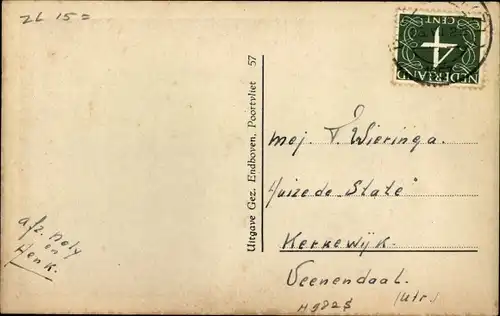 ZL 15=
NEDERLAND
4
CENT
Uitgave Gez. Endhoven, Poortvliet 57
Mej. T. Wieringa.
Huize de State"
Kerkewijk.
Veenendaal.
(Utr.)
afz. Nely
en
Henk.
H9825